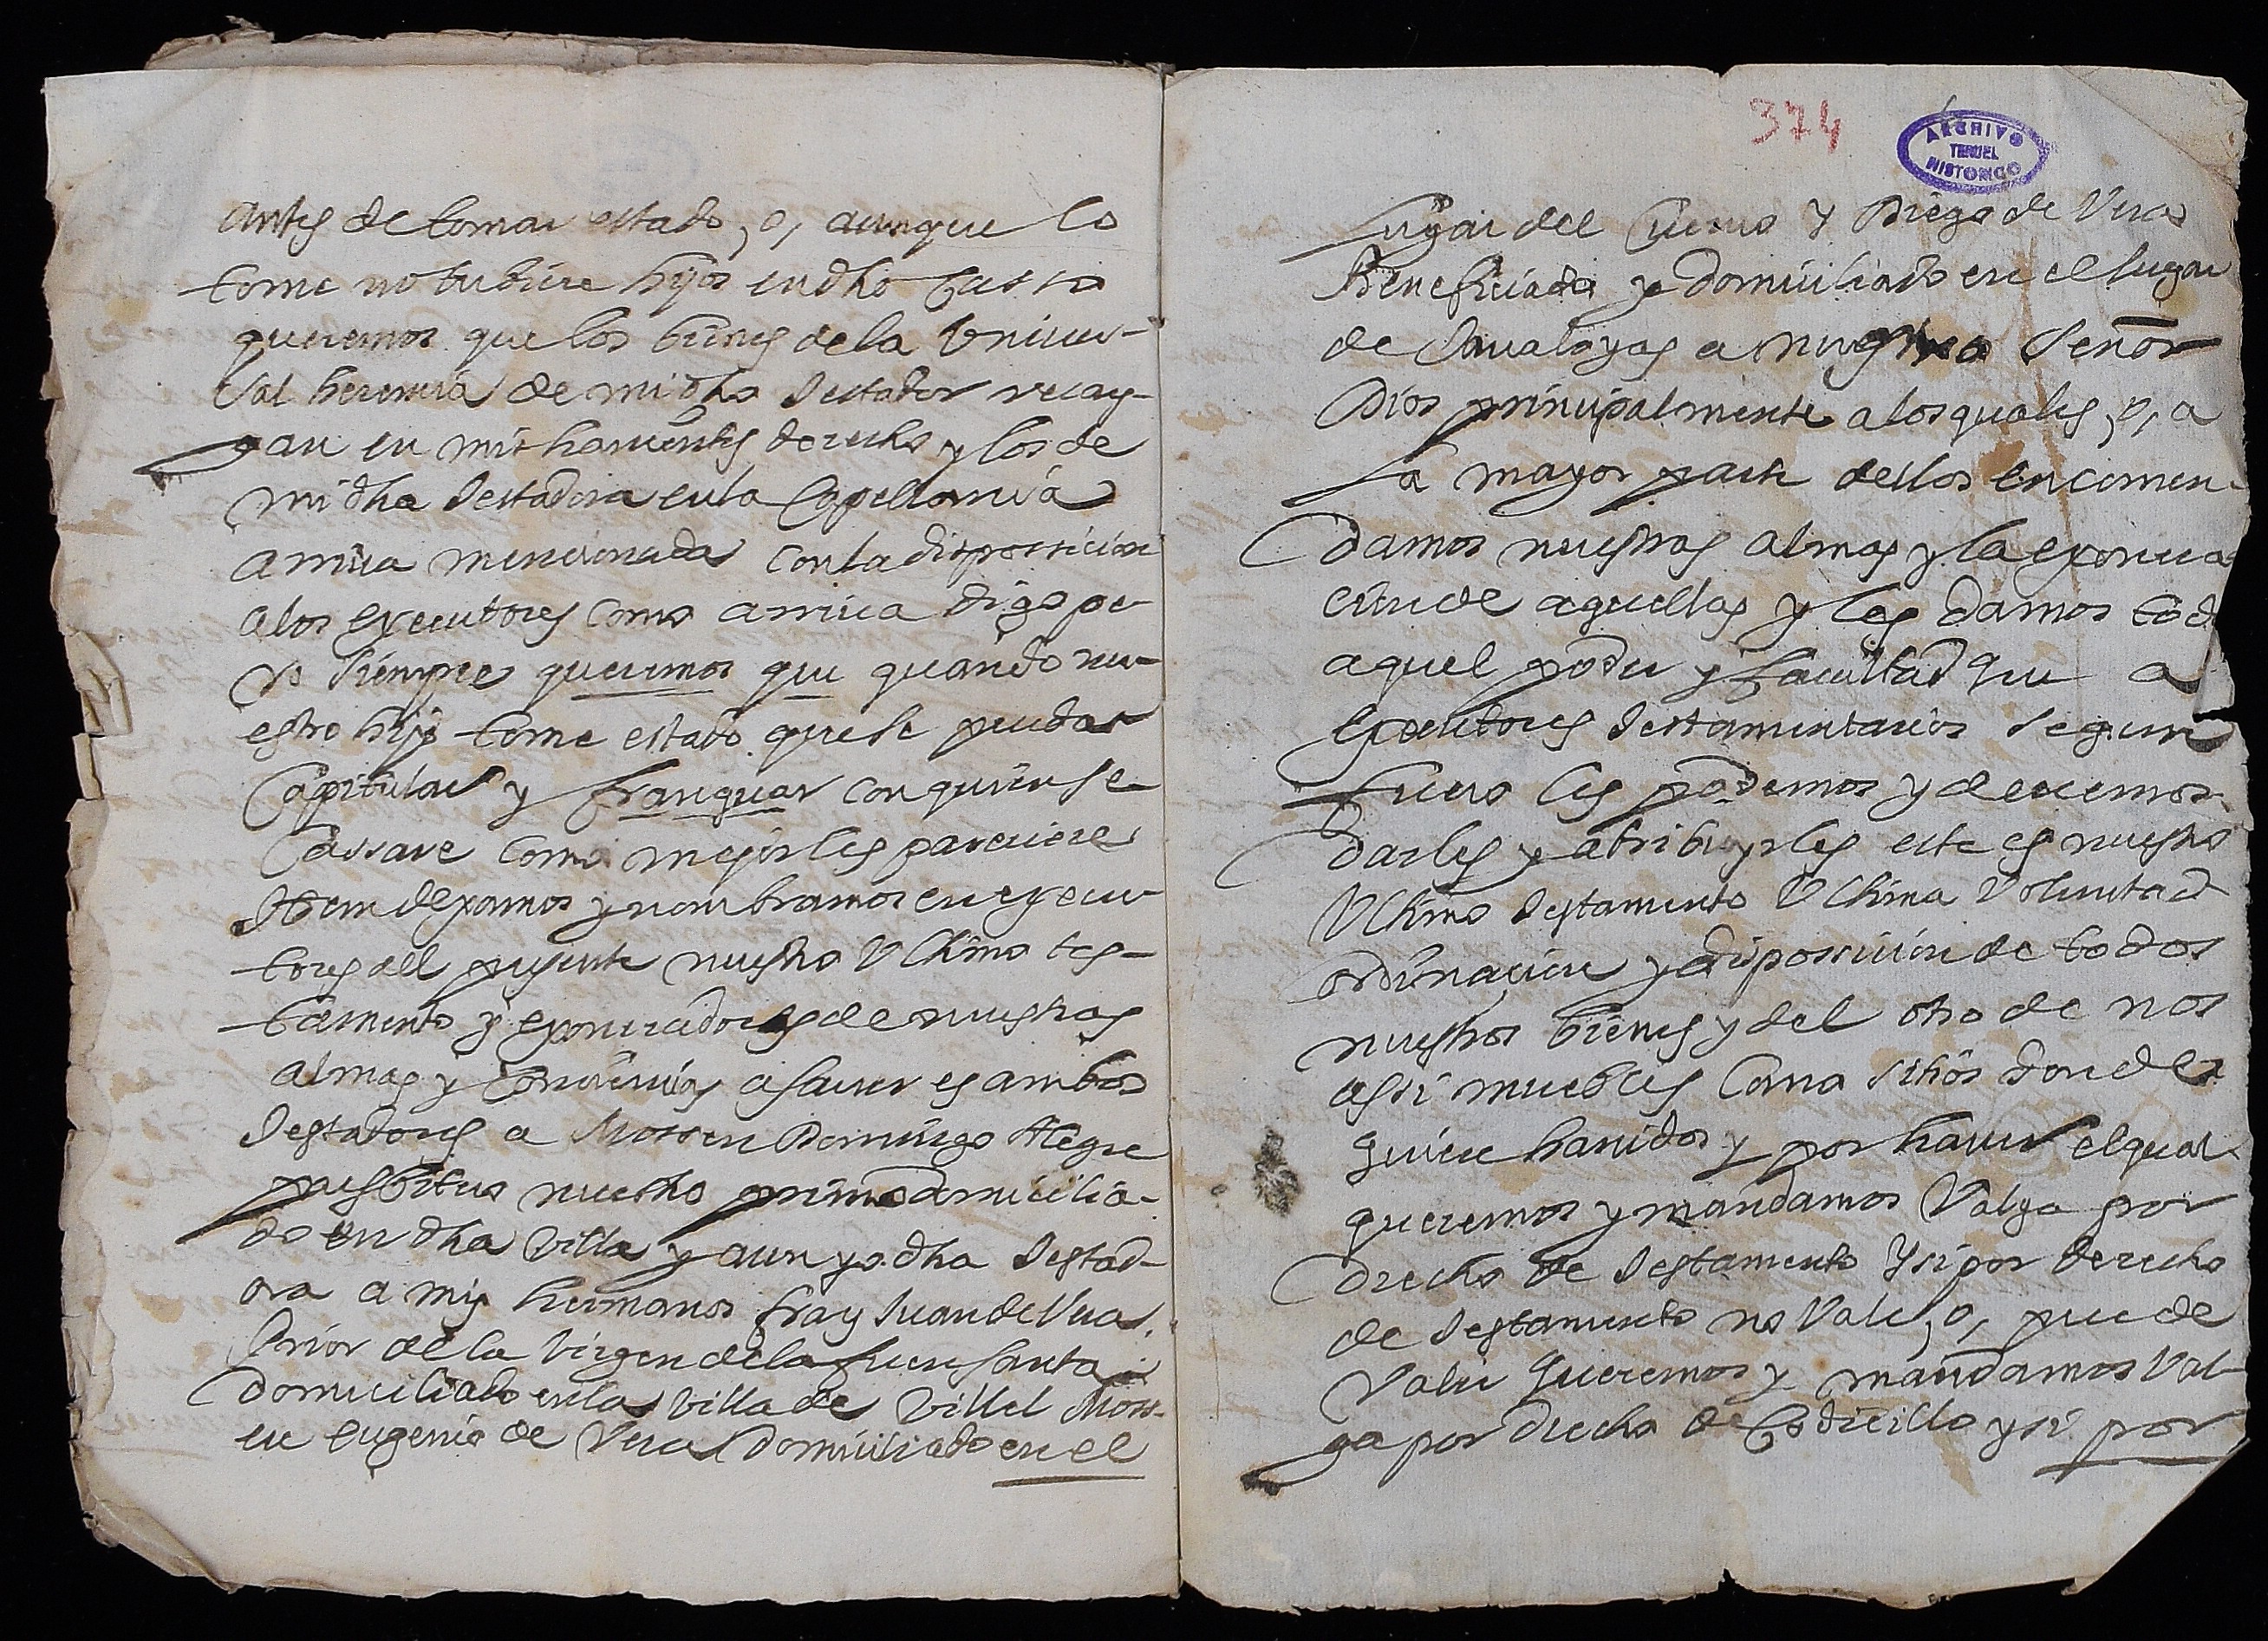 antes de tomar estado, o, aunque lo
tome no tubiere hijos en dho casso
queremos que los bienes de la Univer-
sal herencia de mi dho Testador recay-
gan en mis havientes derecho y los de
mi dha Testadora en la Capellania
arriva mencionada con la dispossicion
a los executores como arriva digo pe-
ro siempre queremos que quando nu-
estro hijo tome estado que se pueda
Capitular y franquar con quien se
cassare como mejor les pareciere
Item dexamos y nombramos en execu-
tores del presente nuestro Ultimo tes-
tamento y exoneradores de nuestras
almas y conciencias a saver es ambos
Testadores a Mossen Domingo Alegre
presbitero nuestro primo domicilia-
do en dha villa y aun yo dha Testad-
ora a mis hermanos fray Juan de Vera
Prior de la Virgen de la fuen santa
domiciliado en la villa de Villel Moss-
en Eugenio de Vera domiciliado en el
374
ARCHIVO
TERUEL
HISTORICO
Lugar del Cuervo Y Diego de Vera
Beneficiado y domiciliado en el lugar
de Javaloyas a nuestro Señor
Dios principalmente a los quales, o, a
la mayor parte dellos encomen-
damos nuestras almas y la exonera
cion de aquellas y les damos tod
aquel poder y facultad que a
executores testamentarios segun
fuero les podemos y devemos
darles y atribuyrles este es nuestro
Ultimo Testamento Ultima Voluntad
ordinacion y dispossicion de todos
nuestros bienes y del otro de nos
assi muebles como sitios donde
quiere havidos y por haver el qual
queremos y mandamos Valga por
drecho de Testamento Y si por derecho
de Testamento no Vale, o, puede
Valer queremos y mandamos Val-
ga por drecho de Codicillo y si por